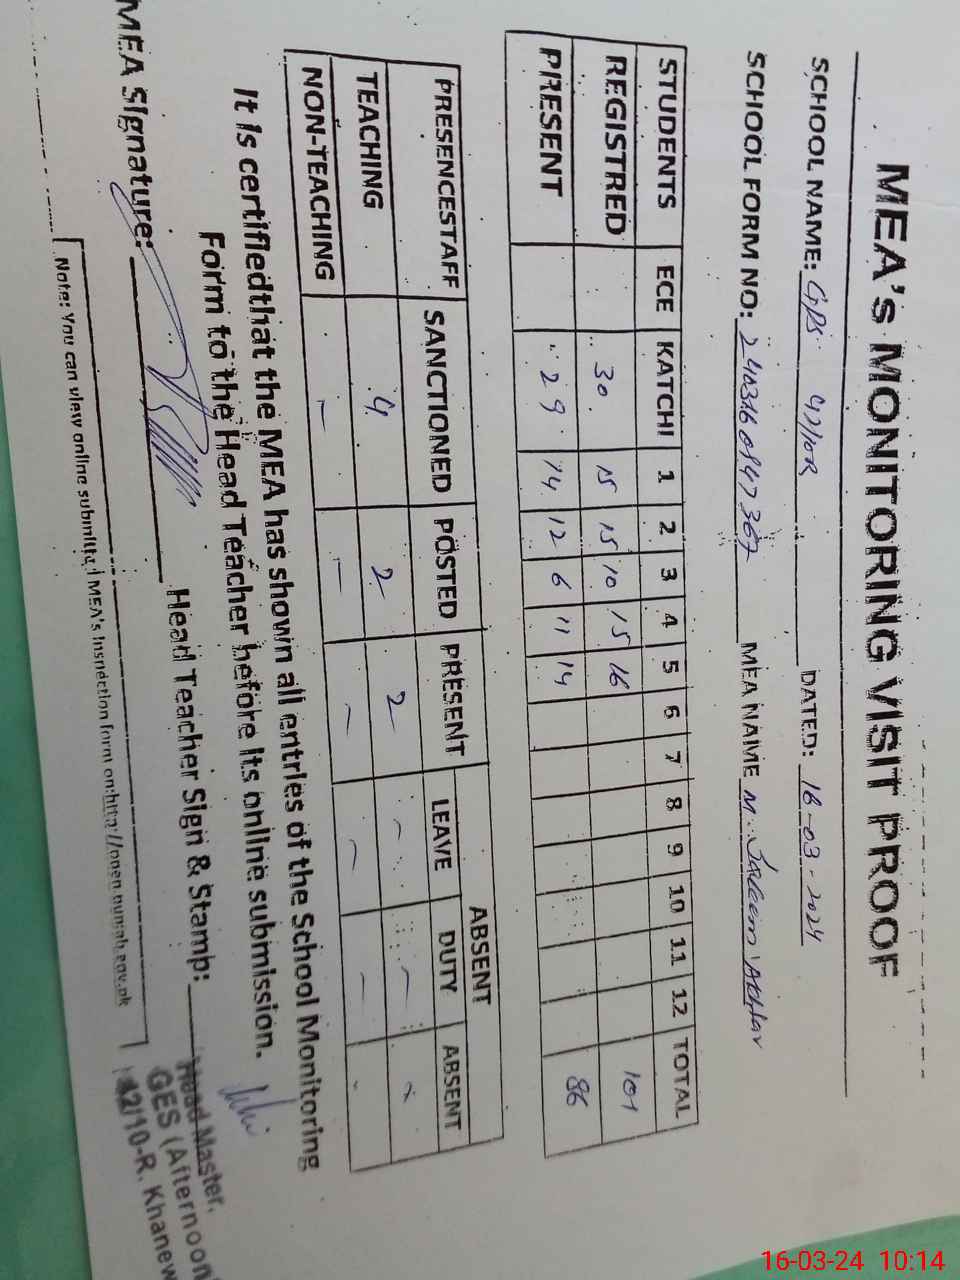 MEA's MONITORING VISIT PROOF
SCHOOL NAME: GPS 42/10R DATED: 16-03-2024
SCHOOL FORM NO: MEA NAME M.
STUDENTS ECE KATCHI 1 2 3 4 5 6 7 8 9 10 11 12 TOTAL
REGISTRED 30 15 15 10 15 16 101
PRESENT 29 14 12 6 11 14 86
ABSENT
PRESENCESTAFF SANCTIONED POSTED PRESENT LEAVE DUTY ABSENT
TEACHING 4 2 2 - - -
NON-TEACHING - - - - - -
It is certifiedthat the MEA has shown all entries of the School Monitoring
Form to the Head Teacher before its online submission.
MEA Signature: Head Teacher Sign & Stamp:
Head Master.
GES (Afternoon
42/10-R. Khanew
Note: You can view online submitted MEA's Inspection form on:http://open.punjab.gov.pk
16-03-24 10:14